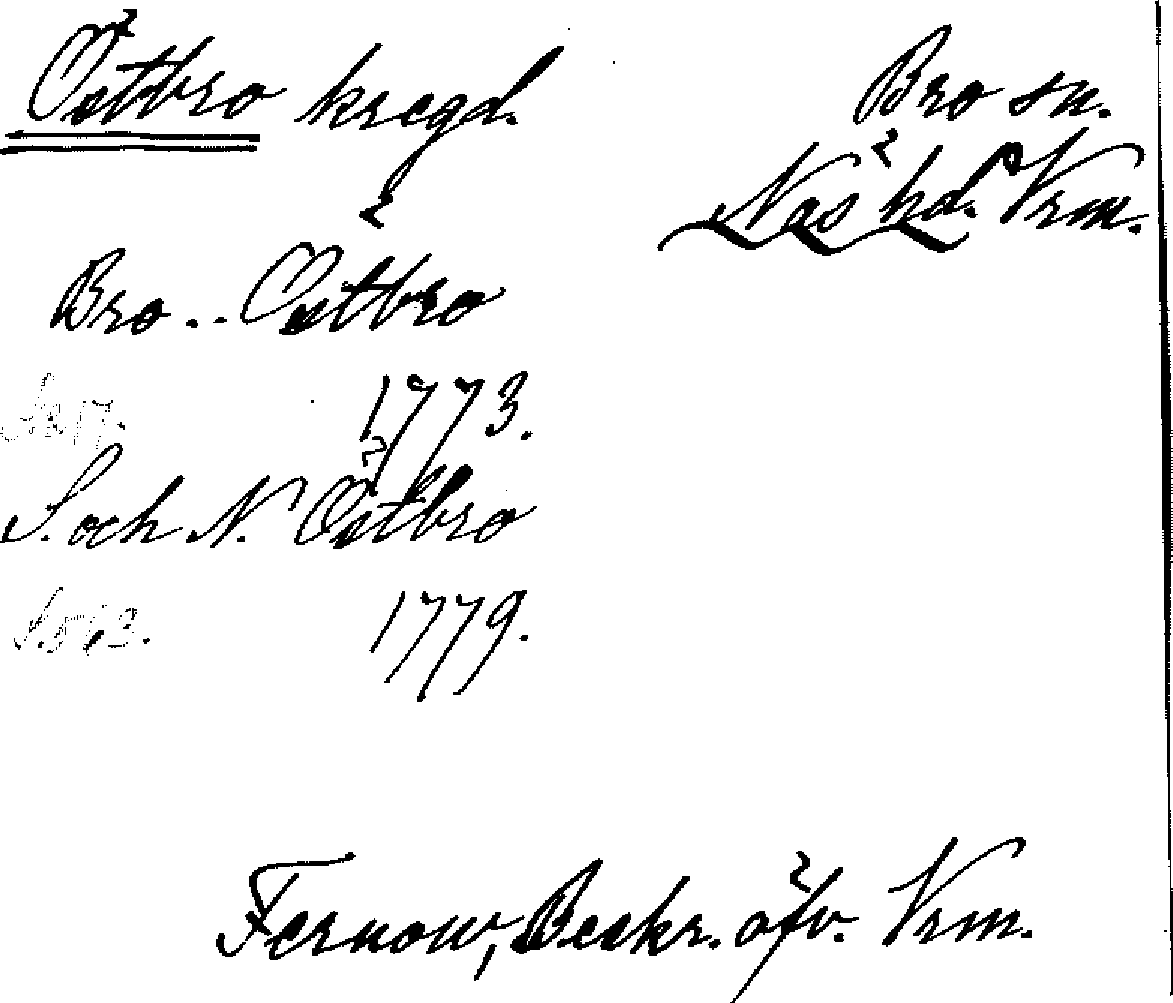 Östbro kregd.
Bro sn.
Näs hd. Vrm.
Bro .. Östbro
1773.
S. och N. Östbro
1779.
Fernow, Beskr. öfv. Vrm.